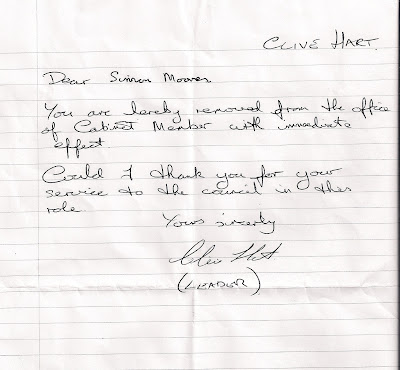 CLIVE HART.
Dear Simon Moores
You are hereby removed from the office
of Cabinet Member with immediate
effect
Could I thank you for your
service to the council in this
role
Yours sincerly
Clive Hart
(LEADER)